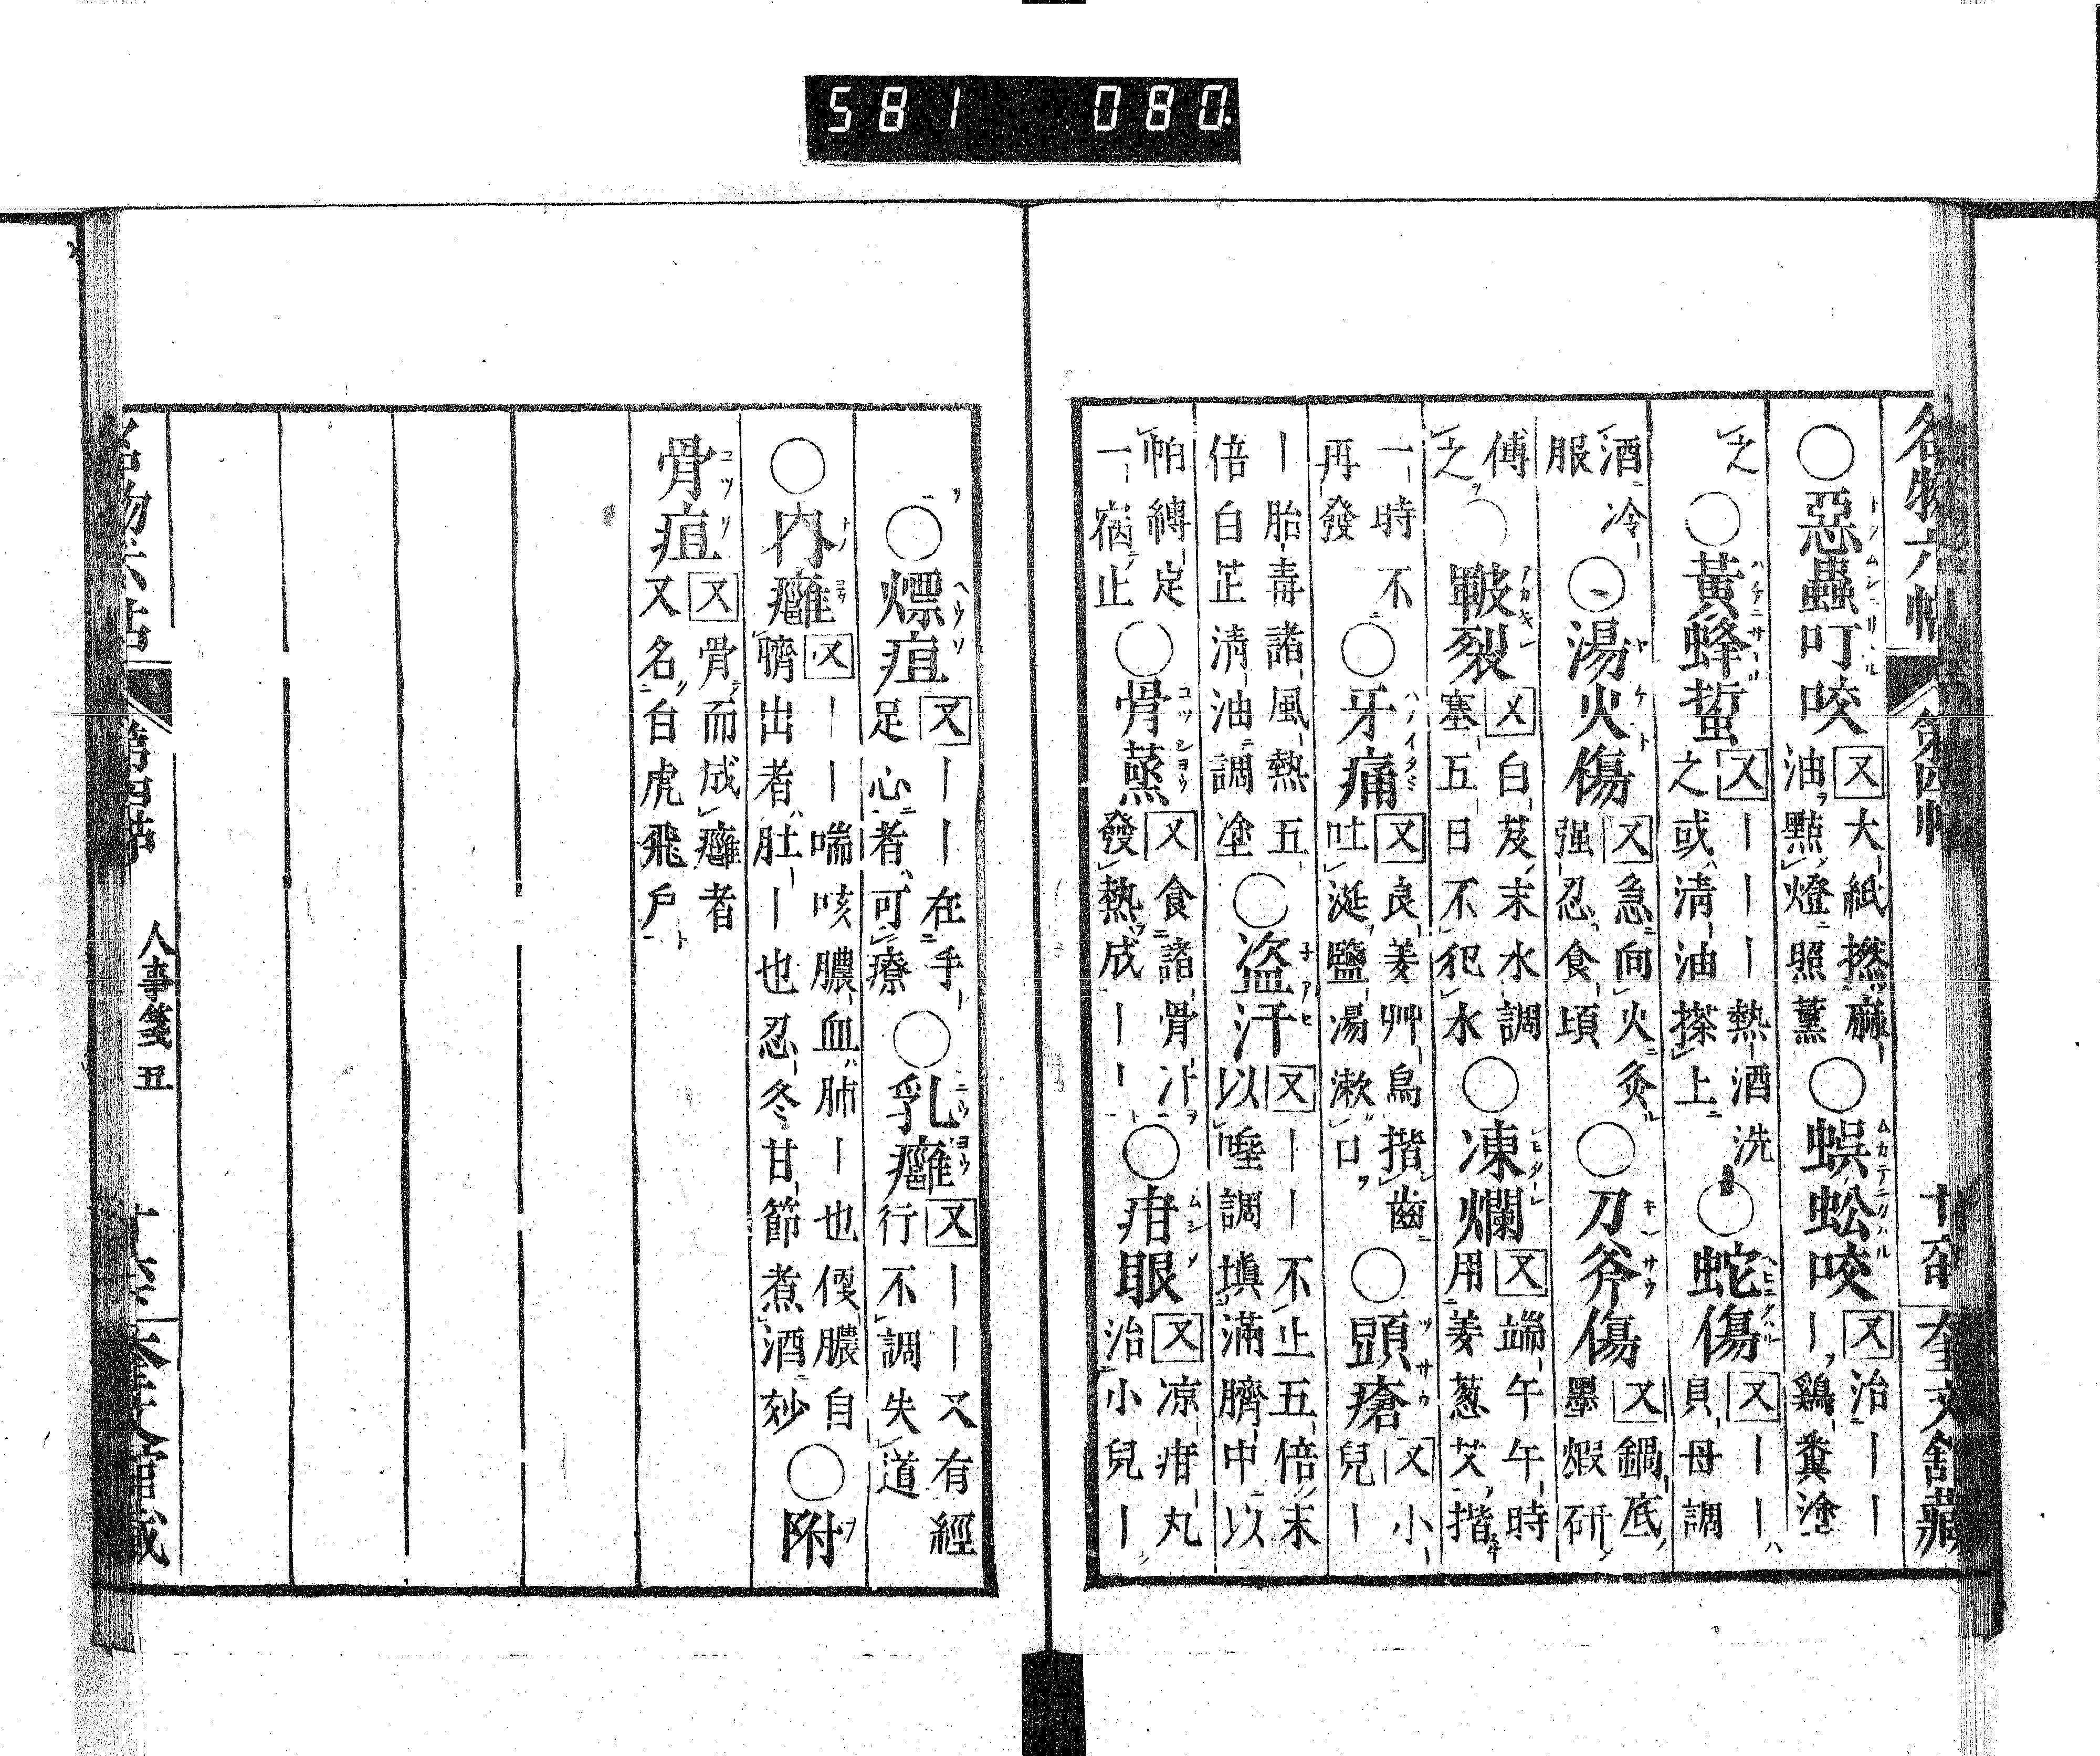 581 080
名物六帖 第四帖 奎文館藏
○惡蟲叮咬 又 大紙撚麻油點燈照薰 ○蜈蚣咬 又 治｜｜｜鷄糞塗
之 ○黃蜂蜇 又 ｜｜｜熱酒洗之或淸油搽上 ○蛇傷 又 ｜｜貝母調
酒冷服 ○湯火傷 又 急向火灸强忍食頃 ○刀斧傷 又 鍋底墨煆研
傅之 ○皸裂 又 白芨末水調塞五日不犯水 ○凍爛 又 端午午時用姜葱艾揩
一時不再發 ○牙痛 又 良姜艸烏揩齒吐涎鹽湯漱口 ○頭瘡 又 小兒｜
｜胎毒諸風熱五倍白芷淸油調塗 ○盜汗 又 ｜｜不止五倍末以唾調塡滿臍中以
帕縛定一宿止 ○骨蒸 又 食諸骨汁發熱成｜｜ ○疳眼 又 凉疳丸治小兒｜
○熛疽 又 ｜｜在手足心者可療 ○乳癰 又 ｜｜又有經行不調失道
○內癰 又 ｜｜喘咳膿血肺｜也便膿自臍出者肚｜也忍冬甘節煮酒妙 ○附
骨疽 又 骨而成癰者又名白虎飛尸
名物六帖 第四帖 人事箋五 奎文館藏